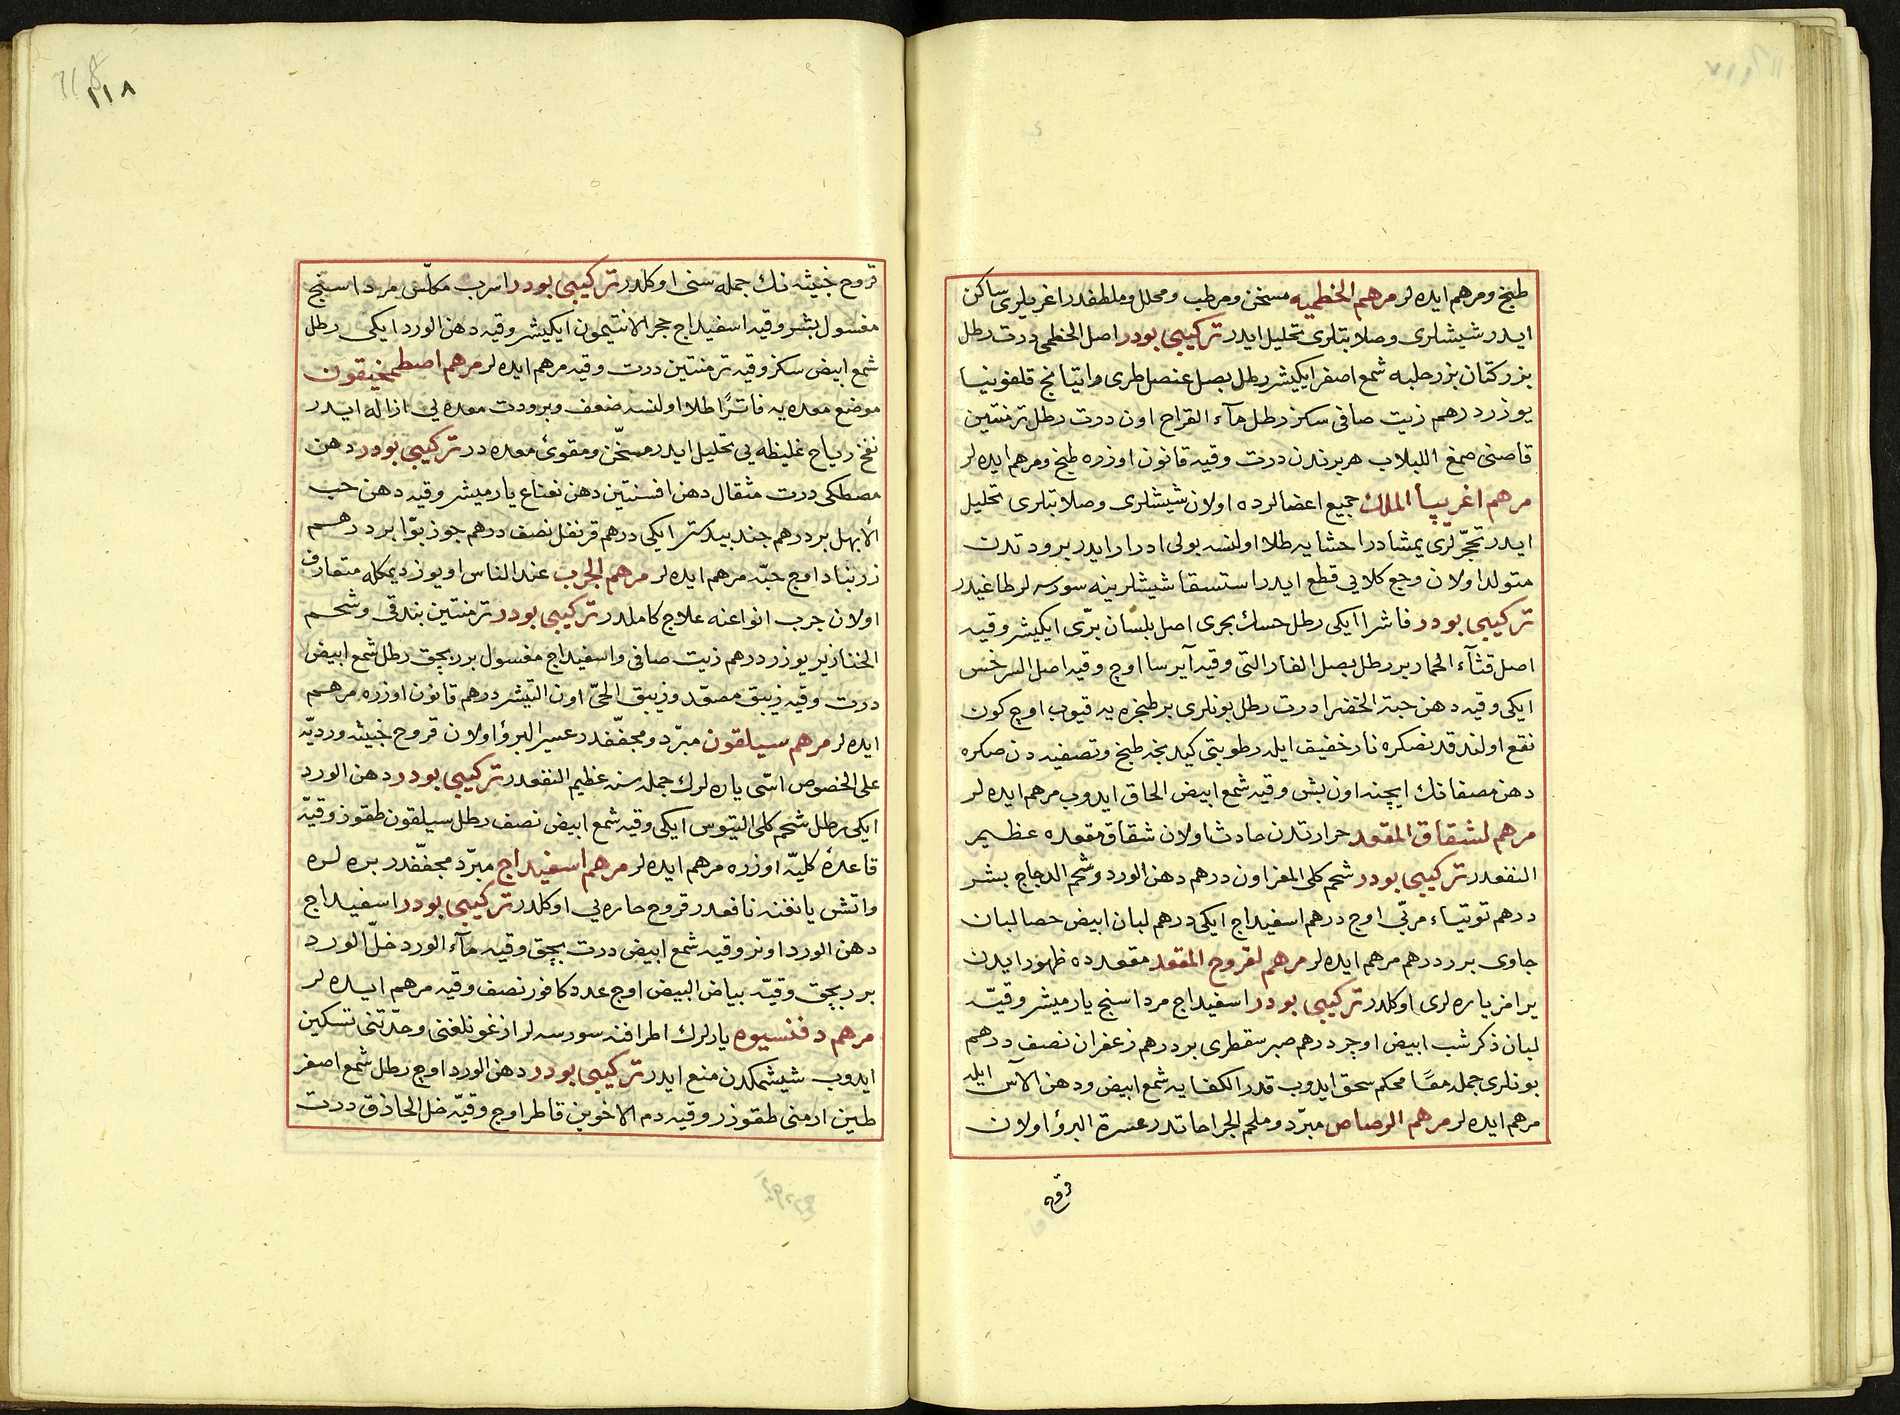 طبخ ومرهم ايده لر مرهم الخطميه مسخن ومرطب ومحلل وملطفدر اغريلرى ساكن
ايدر شيشلرى وصلابتلرى تحليل ايدر تركيبى بودر اصل الخطمى درت رطل
بزر كتان بزر حلبه شمع اصفر ايكيشر رطل بصل عنصل طرى راتيانج قلفونيا
يوزر درهم زيت صافى سكز رطل مآء القراح اون درت رطل ترمنتين
قاصنى صمغ اللبلاب هر برندن درت وقيه قانون اوزره طبخ ومرهم ايده لر
مرهم اغريپا الملك جميع اعضالرده اولان شيشلرى وصلابتلرى تحليل
ايدر تحجّرلرى يمشادر احشايه طلا اولنسه بولى ادرار ايدر برودتدن
متولد اولان وجع كلايى قطع ايدر استسقا شيشلرينه سورسه لر طاغيدر
تركيبى بودر فاشرا ايكى رطل حسك بحرى اصل بلسان برّى ايكيشر وقيه
اصل قثآء الحمار بر رطل بصل الفار التى وقيه آيرسا اوچ وقيه اصل السرخس
ايكى وقيه دهن حبة الخضرا درت رطل بونلرى بر طنجره يه قيوب اوچ كون
نقع اولندقدنصكره نار خفيف ايله رطوبتى كيدنجه طبخ وتصفيه دن صكره
دهن مصفانك ايچنه اون بش وقيه شمع ابيض الحاق ايدوب مرهم ايده لر
مرهم لشقاق المقعد حرارتدن حادث اولان شقاق مقعده عظيم
النفعدر تركيبى بودر شحم كلى المعز اون درهم دهن الورد وشحم الدجاج بشر
درهم توتياء مربّى اوچ درهم اسفيداج ايكى درهم لبان ابيض حصالبان
جاوى برر درهم مرهم ايده لر مرهم لقروح المقعد مقعدده ظهور ايدن
يرامز ياره لرى اوكلدر تركيبى بودر اسفيداج مرداسنج يارميشر وقيّه
لبان ذكر شب ابيض اوچر درهم صبر سقطرى بر درهم زعفران نصف درهم
بونلرى جمله معًا محكم سحق ايدوب قدر الكفايه شمع ابيض ودهن الآس ايله
مرهم ايده لر مرهم الرصاص مبرّد وملحم الجراحاتدر عسرة البرؤ اولان
قروح
١١٨
قروح خبيثه نك جمله سنى اوكلدر تركيبى بودر اسرب مكلّس مرداسنج
مغسول بشر وقيه اسفيداج حجر الانتيمون ايكيشر وقيه دهن الورد ايكى رطل
شمع ابيض سكز وقيه ترمنتين درت وقيه مرهم ايده لر مرهم اصطمخيقون
موضع معده يه فاترًا طلا اولنسه ضعف وبرودت معده يى ازاله ايدر
نفخ رياح غليظه يى تحليل ايدر مسخّن ومقوئ معده در تركيبى بودر دهن
مصطكى درت مثقال دهن افسنتين دهن نعناع يارميشر وقيه دهن حب
الأبهل بر درهم جندبيدستر ايكى درهم قرنفل نصف درهم جوز بوّا بر درهم
زرنباد اوچ حبّه مرهم ايده لر مرهم الجرب عند الناس اويوز ديمكله متعارف
اولان جرب انواعنه علاج كاملدر تركيبى بودر ترمنتين بندقى وشحم
الخنازير يوزر درهم زيت صافى واسفيداج مغسول برر بچق رطل شمع ابيض
درت وقيه زيبق مصعّد وزيبق الحىّ اون التيشر درهم قانون اوزره مرهم
ايده لر مرهم سيلقون مبرّد ومجفّفدر عسير البرؤ اولان قروح خبيثه ورديّه
على الخصوص اتى ياره لرك جمله سنه عظيم النفعدر تركيبى بودر دهن الورد
ايكى رطل شحم كلى التيوس ايكى وقيه شمع ابيض نصف رطل سيلقون طقوز وقيّه
قاعدۀ كليّه اوزره مرهم ايده لر مرهم اسفيداج مبرّد مجفّفدر بره لره
واتش يانغنه نافعدر قروح حاره يى اوكلدر تركيبى بودر اسفيداج
دهن الورد اونر وقيه شمع ابيض درت بچق وقيه مآء الورد خلّ الورد
برر بچق وقيّه بياض البيض اوچ عدد كافور نصف وقيه مرهم ايده لر
مرهم دفنسيوه يارلرك اطرافنه سورسه لر ازغونلغنى وحدّتنى تسكين
ايدوب شيشمكدن منع ايدر تركيبى بودر دهن الورد اوچ رطل شمع اصفر
طين ارمنى طقوزر وقيه دم الاخوين قاطر اوچ وقيّه خل الحاذق درت